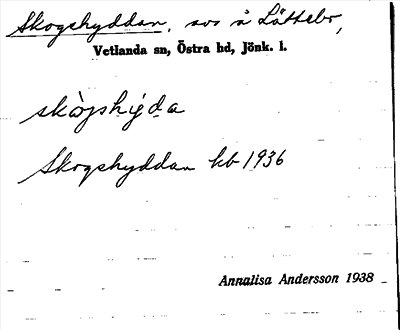 Skogshyddan, avs å Låttebo,
Vetlanda sn, Östra hd, Jönk. l.
skògshýda
Skogshyddan kb 1936
Annalisa Andersson 1938